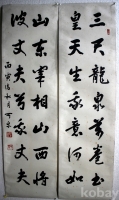 三尺龍泉萬卷書
皇天生我意何如
山東宰相山西將
彼丈夫兮我丈夫
丙寅
kobay